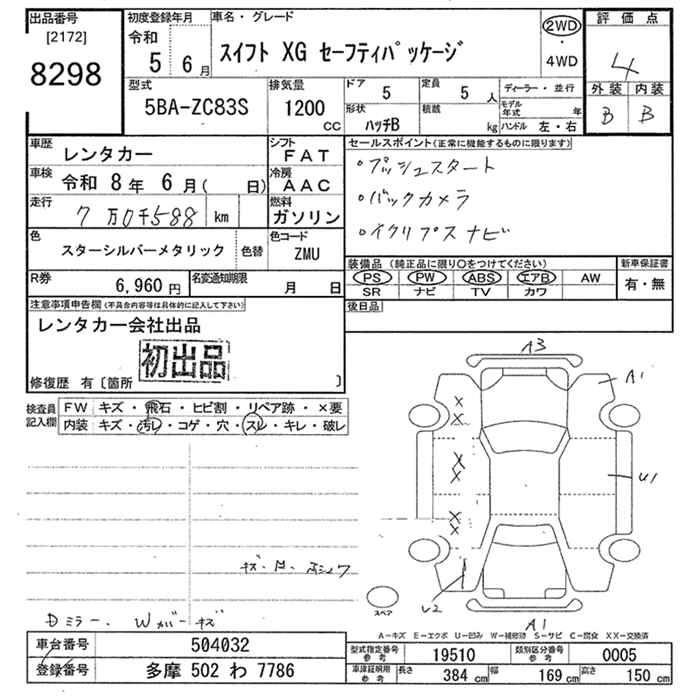 出品番号
[2172]
8298
初度登録年月
令和
5 6月
車名・グレード
スイフト XG セーフティパッケージ
2WD
・
4WD
評価点
4
外装 内装
B B
型式
5BA-ZC83S
排気量
1200
cc
ドア
5
定員
5 人
形状
ハッチB
積載
kg
ディーラー・並行
モデル年式 年
ハンドル 左・右
車歴
レンタカー
車検
令和 8年 6月( 日)
走行
7万0千588 km
色
スターシルバーメタリック
色替
シフト
FAT
冷房
AAC
燃料
ガソリン
色コード
ZMU
R券
6,960円
名変通知期限
月 日
セールスポイント(正常に機能するものに限ります)
・プッシュスタート
・バックカメラ
・イクリプスナビ
装備品(純正品に限り○をつけてください)
PS PW ABS エアB AW
SR ナビ TV カワ
新車保証書
有・無
後日品
注意事項申告欄(不具合内容等は具体的に記入して下さい)
レンタカー会社出品
初出品
修復歴 有〔箇所 〕
検査員記入欄
FW キズ・飛石・ヒビ割・リペア跡・×要
内装 キズ・汚レ・コゲ・穴・スレ・キレ・破レ
Dミラー、Wカバーキズ
A3
A1
U1
X
X
X
X
X
X
U2
A1
スペア
A-キズ E-エクボ U-凹み W-補修跡 S-サビ C-腐食 XX-交換済
車台番号
504032
登録番号
多摩 502 わ 7786
型式指定番号
参考
19510
類別区分番号
参考
0005
車庫証明用
参考
長さ
384 cm
幅
169 cm
高さ
150 cm